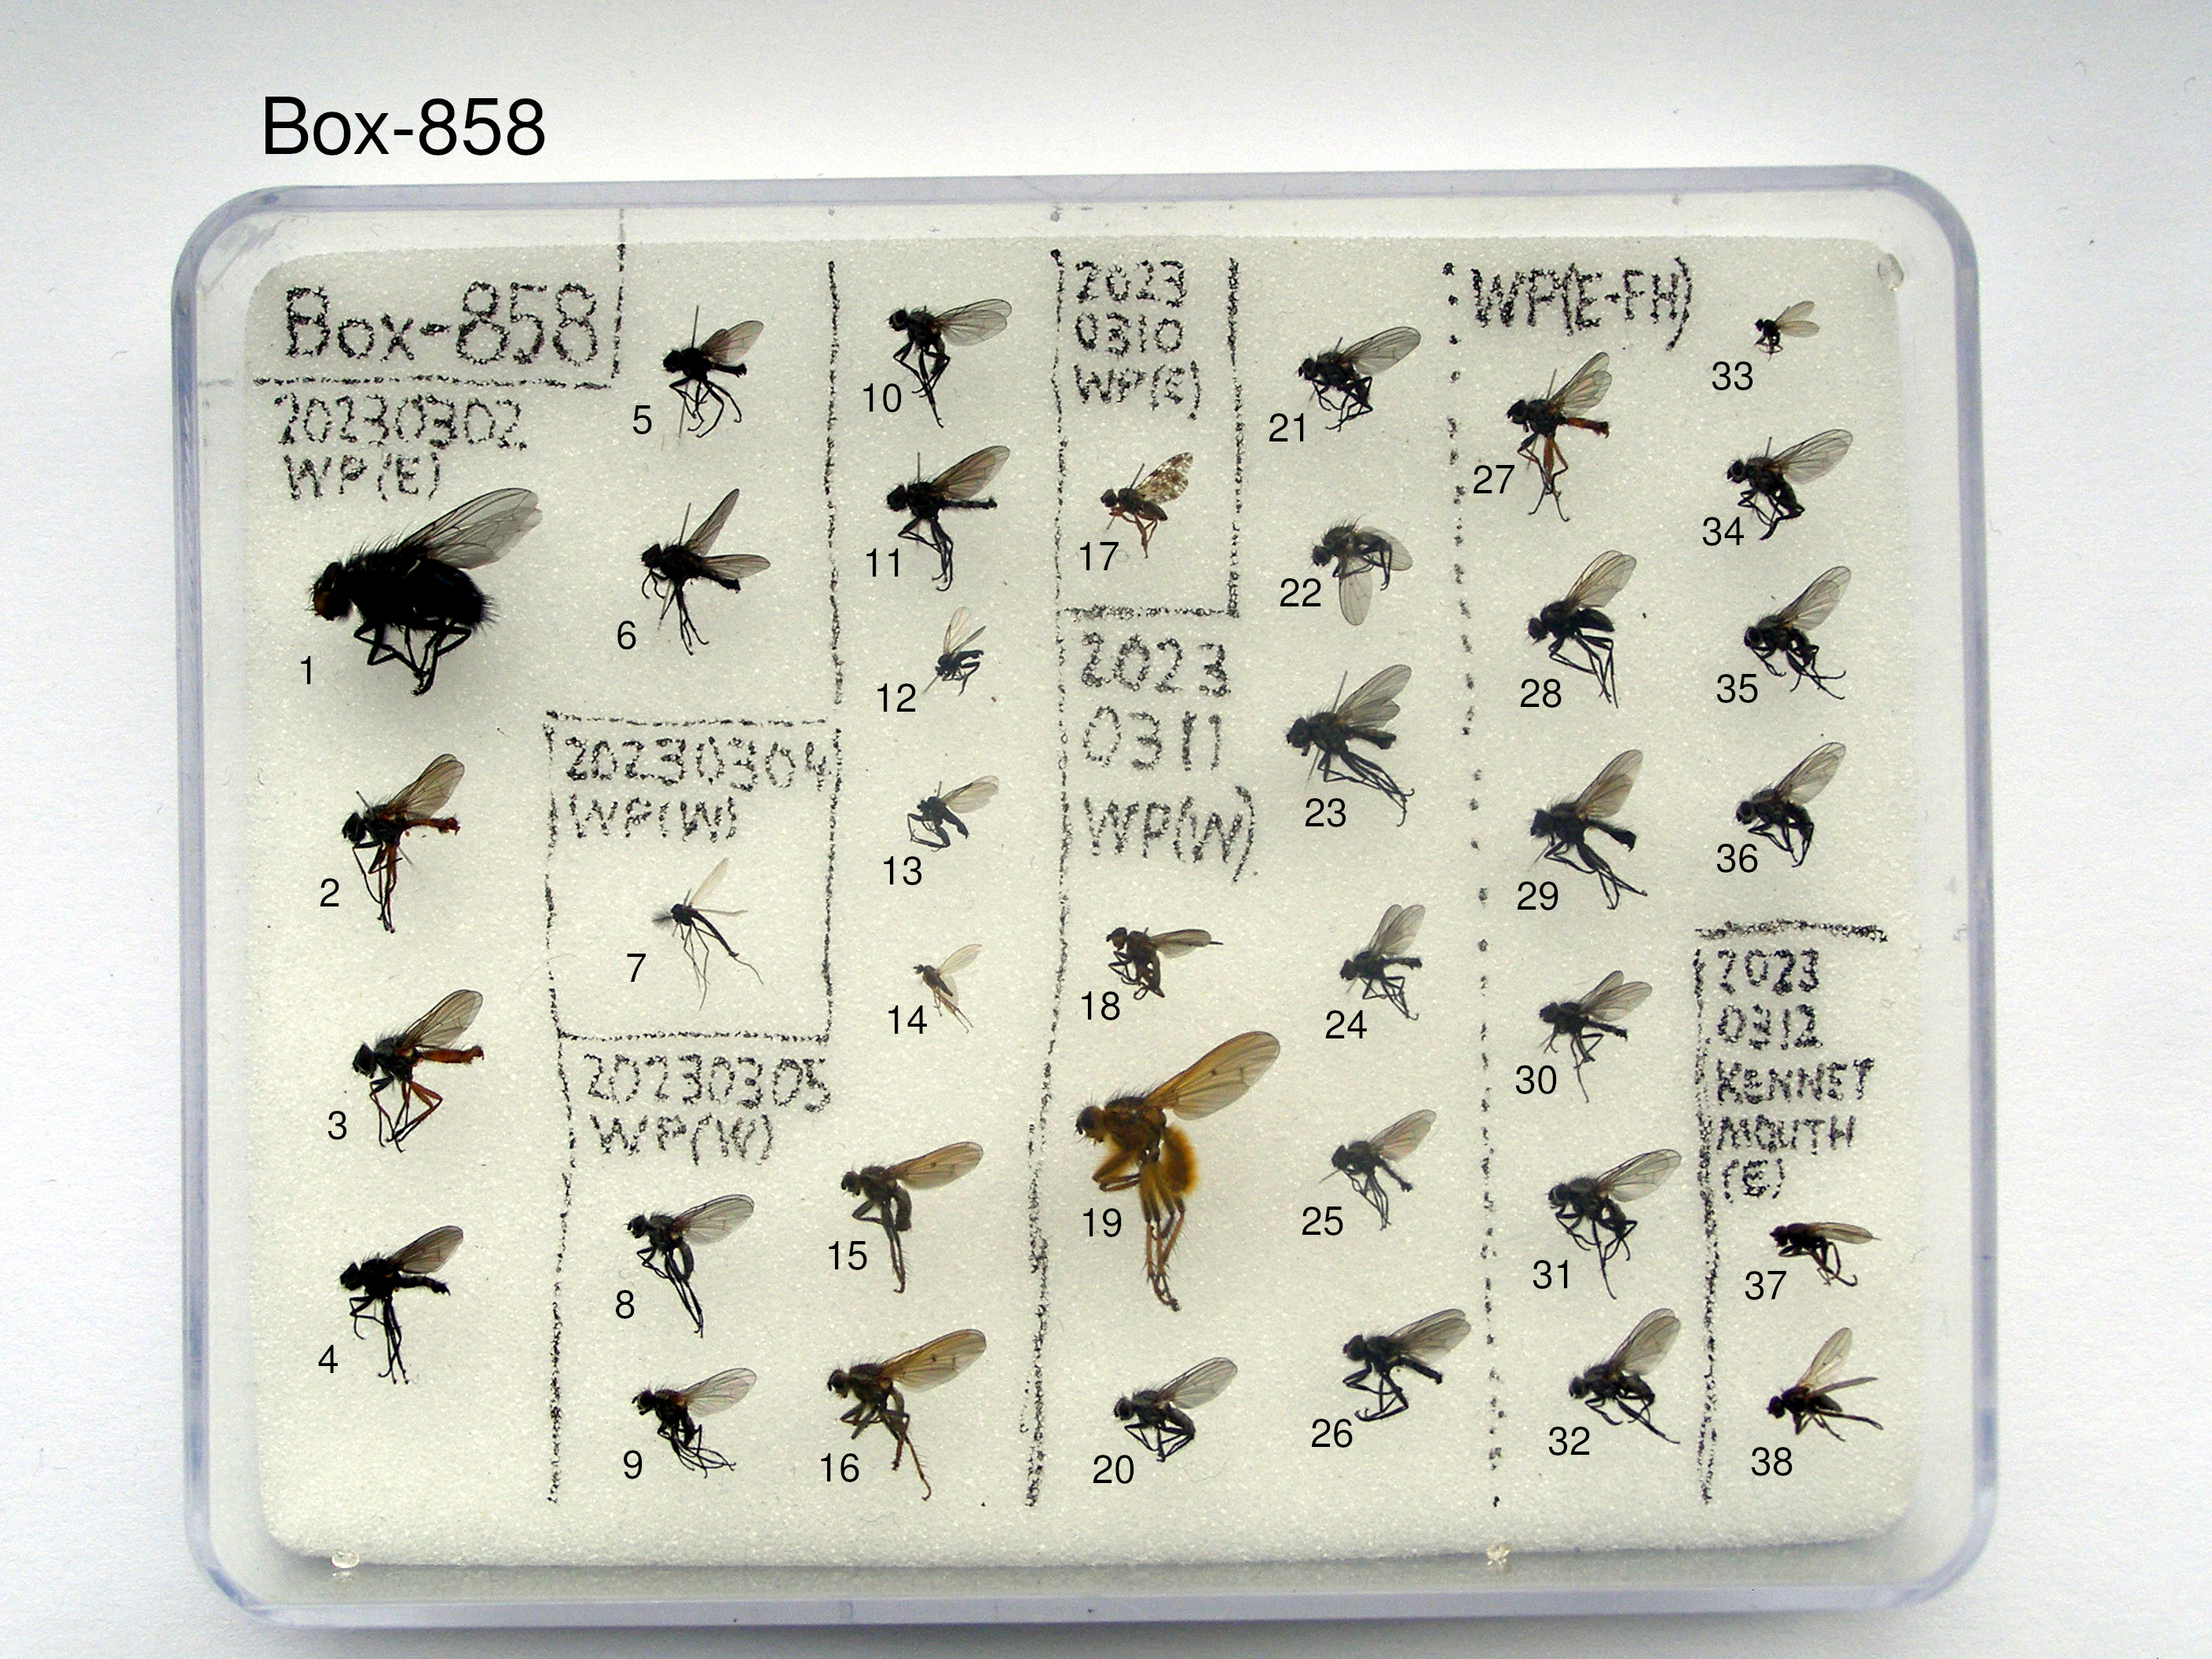 Box-858
Box-858
20230302
WP(E)
1
2
3
4
5
6
20230304
WP(W)
7
20230305
WP(W)
8
9
10
11
12
13
14
15
16
2023
0310
WP(E)
17
2023
0311
WP(W)
18
19
20
21
22
23
24
25
26
WP(E-FH)
27
28
29
30
31
32
33
34
35
36
2023
0312
KENNET
MOUTH
(E)
37
38